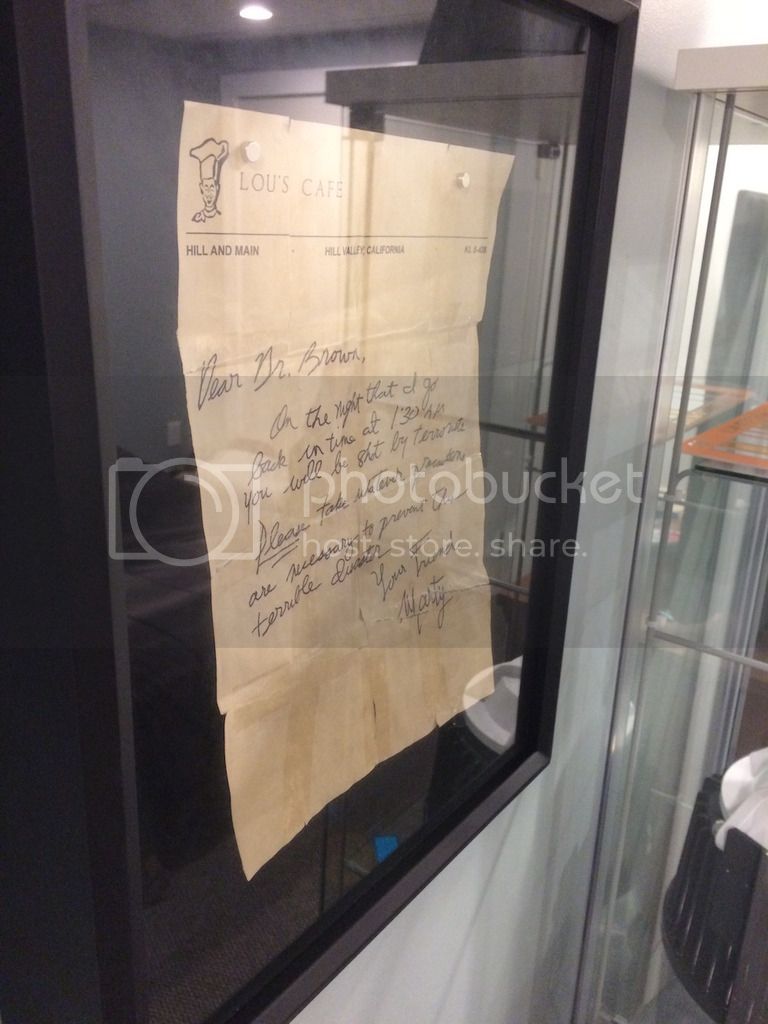 LOU'S CAFE
HILL AND MAIN - HILL VALLEY, CALIFORNIA -
Dear Dr. Brown,
On the night that I go
back in time at 1:30
you will be shot by terrorists
Please take whatever precautions
are necessary to prevent this
terrible disaster
Your Friend
Marty
photobucket
host. store. share.